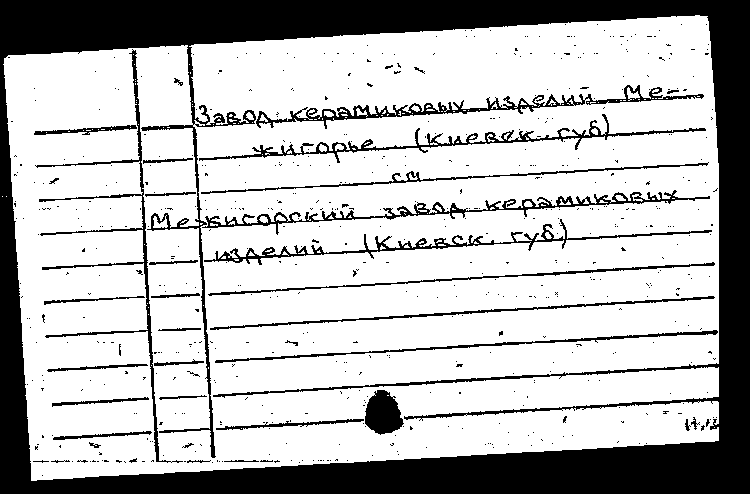 Завод керамиковых изделий Ме-
жигорье (Киевск. губ)
см
Межигорский завод керамиковых
изделий (Киевск. губ.)